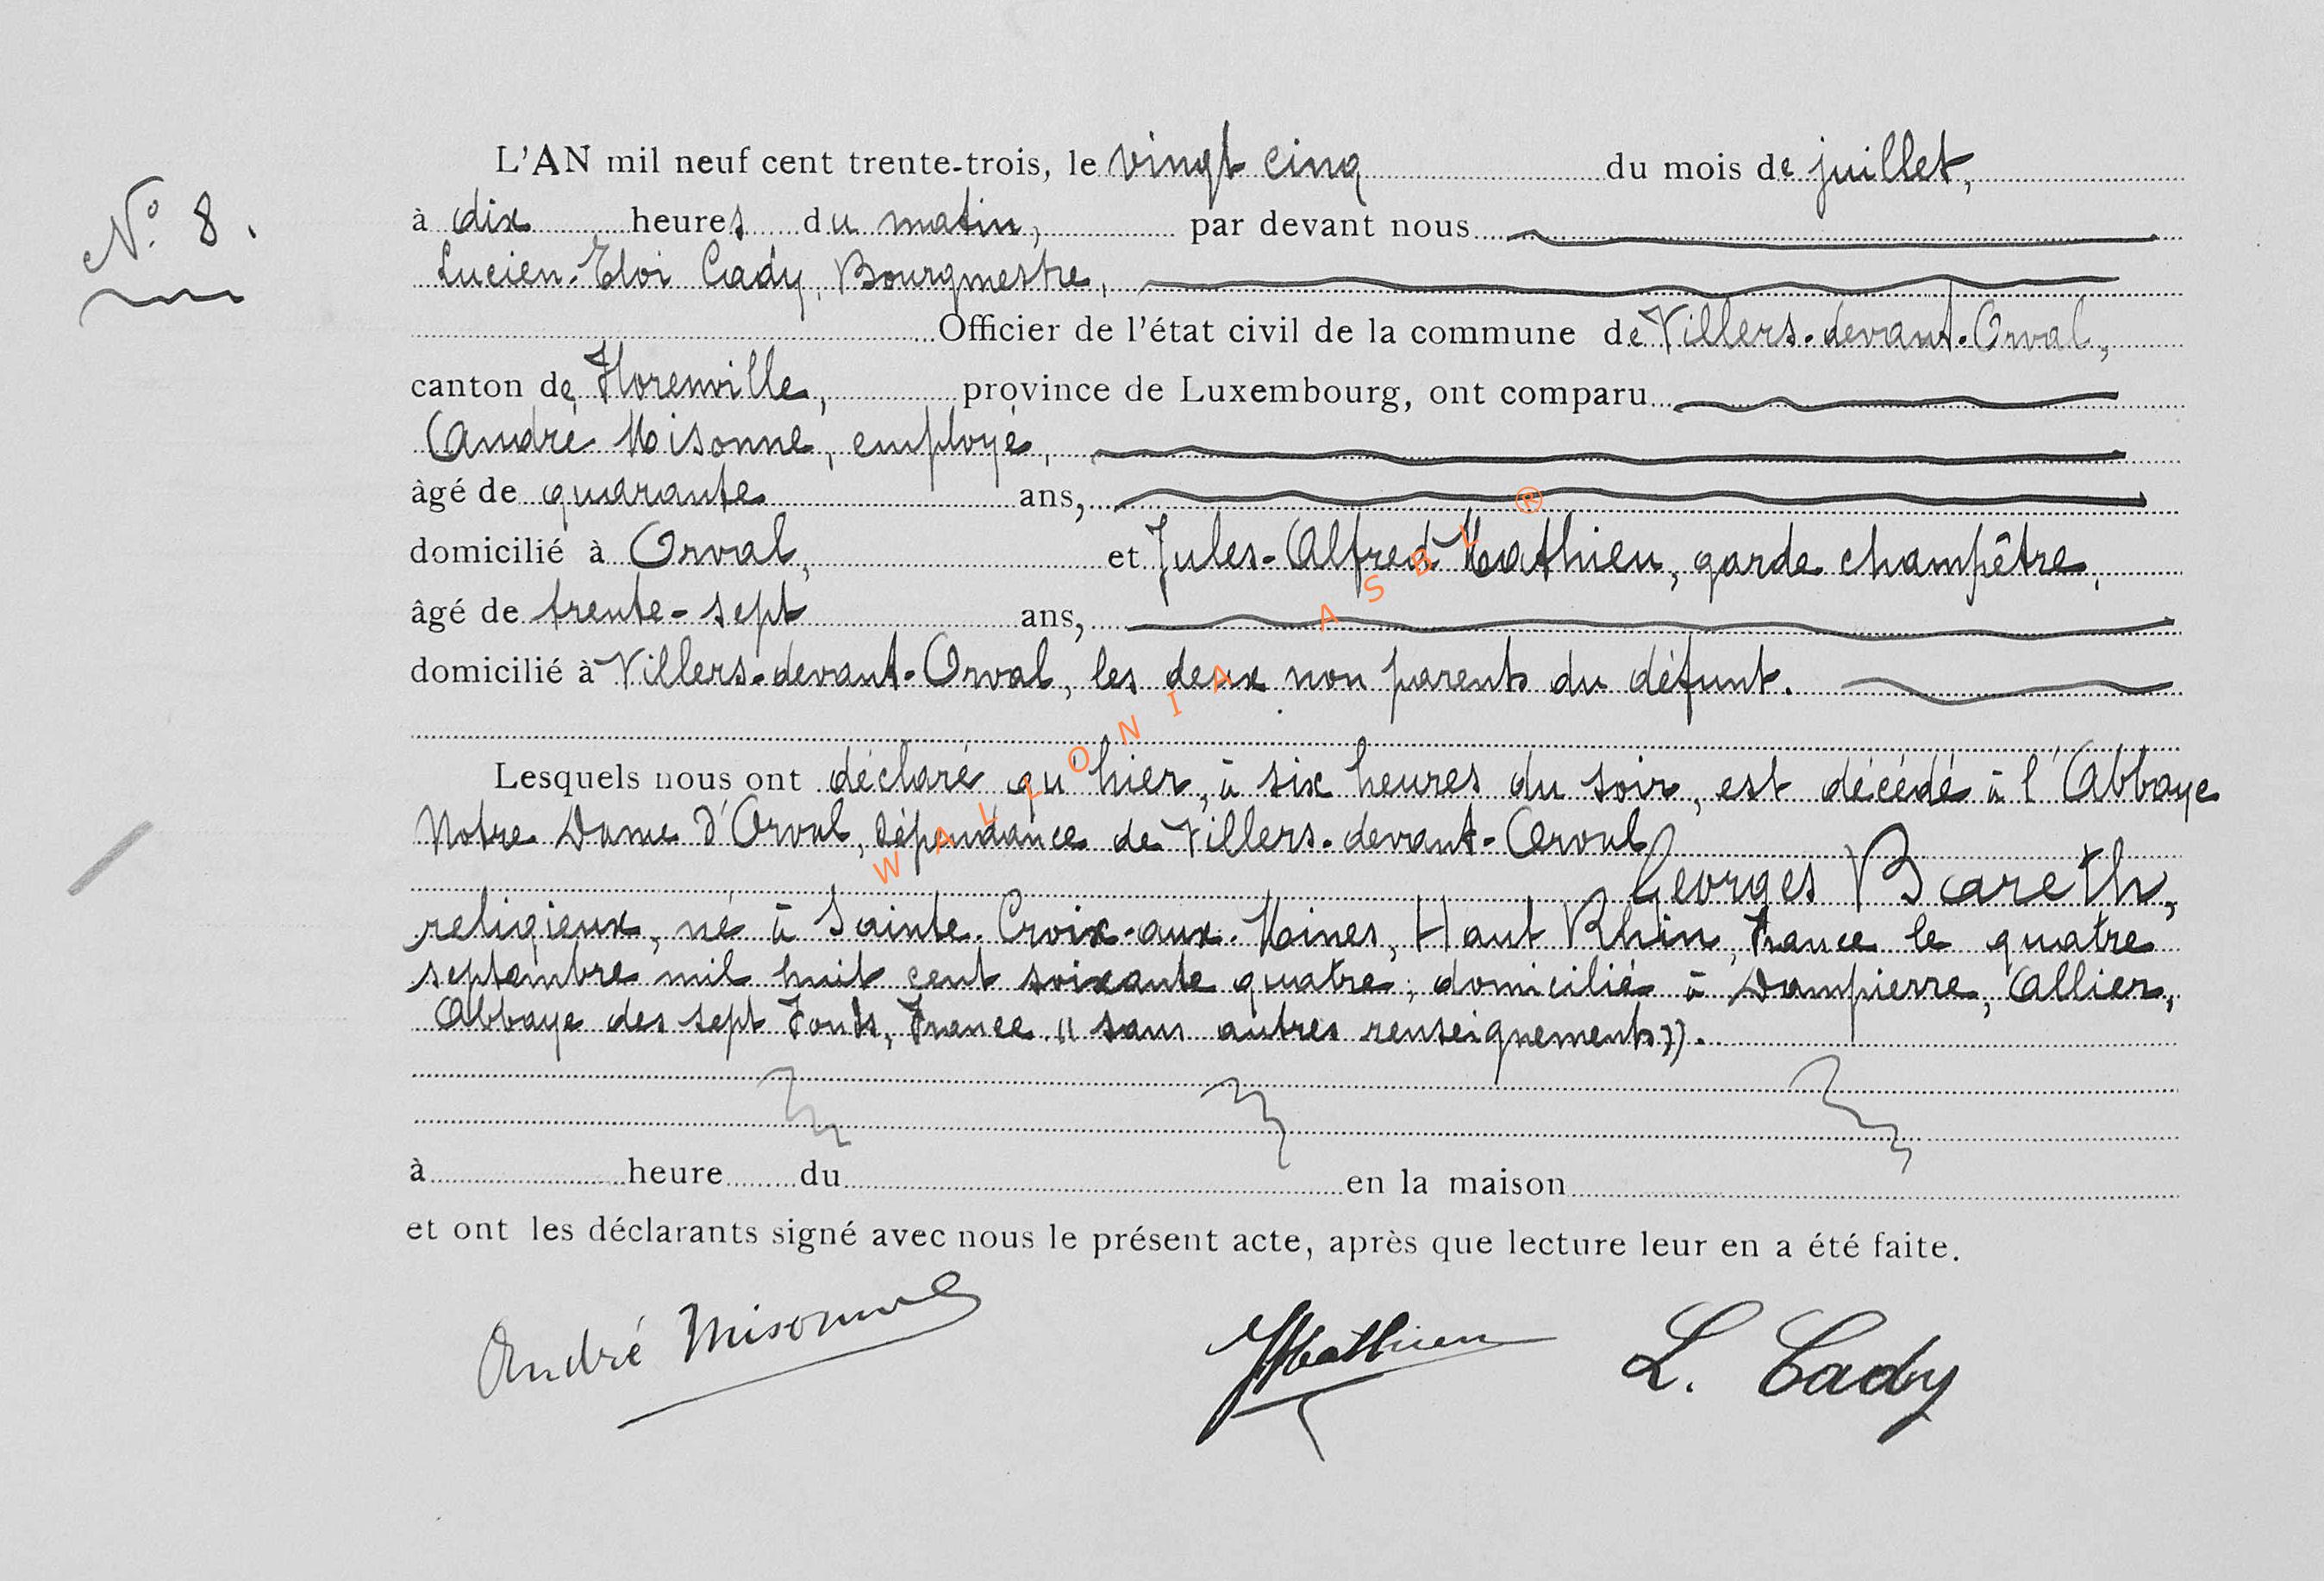 N° 8.
L'AN mil neuf cent trente-trois, le vingt cinq du mois de juillet,
à dix heures du matin, par devant nous
Lucien-Eloi Cady, Bourgmestre,
Officier de l'état civil de la commune de Villers-devant-Orval,
canton de Florenville, province de Luxembourg, ont comparu
André Misonne, employé,
âgé de quarante ans,
domicilié à Orval, et Jules-Alfred Mathieu, garde champêtre,
âgé de trente-sept ans,
domicilié à Villers-devant-Orval, les deux non parents du défunt.
Lesquels nous ont déclaré qu'hier, à six heures du soir, est décédé à l'Abbaye
Notre Dame d'Orval, dépendance de Villers-devant-Orval
Georges Bareth,
religieux, né à Sainte-Croix-aux-Mines, Haut Rhin, France le quatre
septembre mil huit cent soixante quatre, domicilié à Dompierre, Allier,
Abbaye des sept Fonts, France « sans autres renseignements ».
à heure du en la maison
et ont les déclarants signé avec nous le présent acte, après que lecture leur en a été faite.
André Misonne JMathieu L. Cady
WALLONIA ASBL ®